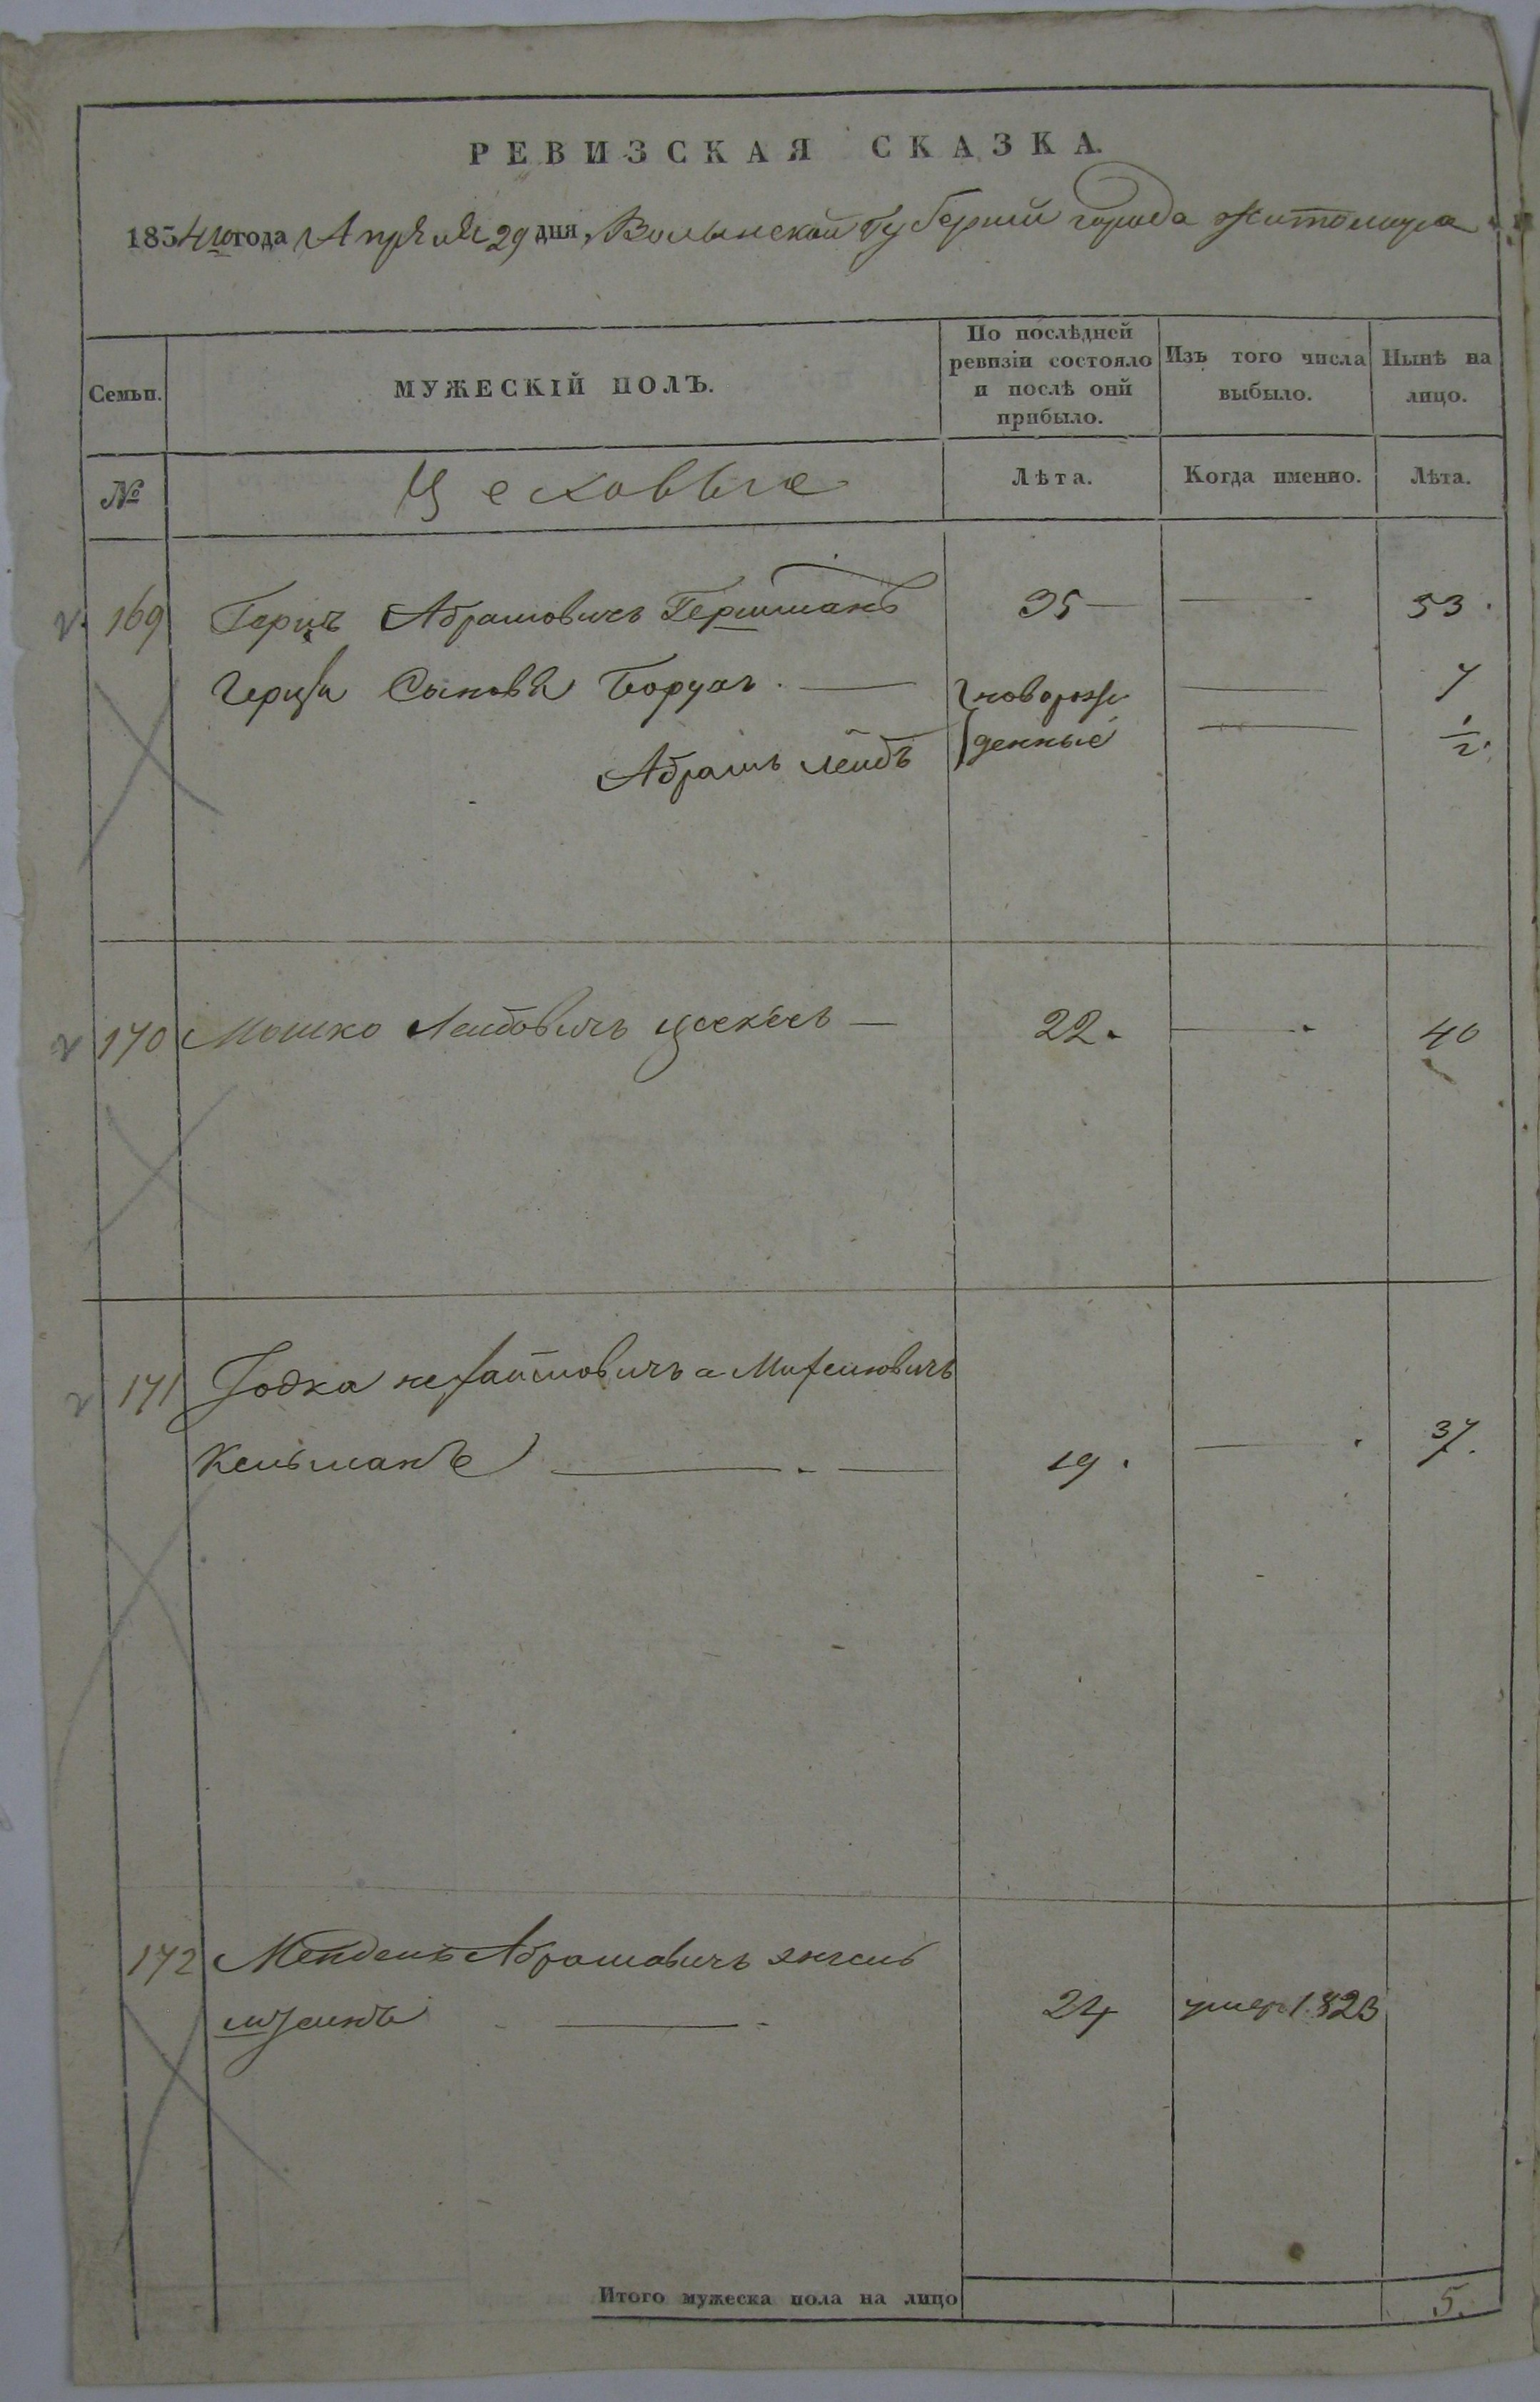 РЕВИЗСКАЯ СКАЗКА.
1854го года Апреля 29 дня, Волынской Губернии города Житомира
Семьи.
МУЖЕСКІЙ ПОЛЪ.
По послѣдней
ревизіи состояло
и послѣ оий
прибыло.
Изъ того числа
выбыло.
Нынѣ на
лицо.
№
Цеховые
Лѣта.
Когда именно.
Лѣта.
169 Герцъ Абрамовичъ Гершманъ 35 — — 53.
Герца Сыновья Борухъ. — новорож 7
Абрамъ Лейбъ денные — 1/2.
170 Мошко Лейбовичъ — 22. — 40
171 Іодка
Кельманъ — 19. — 37.
172 Мендель Абрамовичъ
24 умер 1823
Итого мужеска пола на лицо 5.